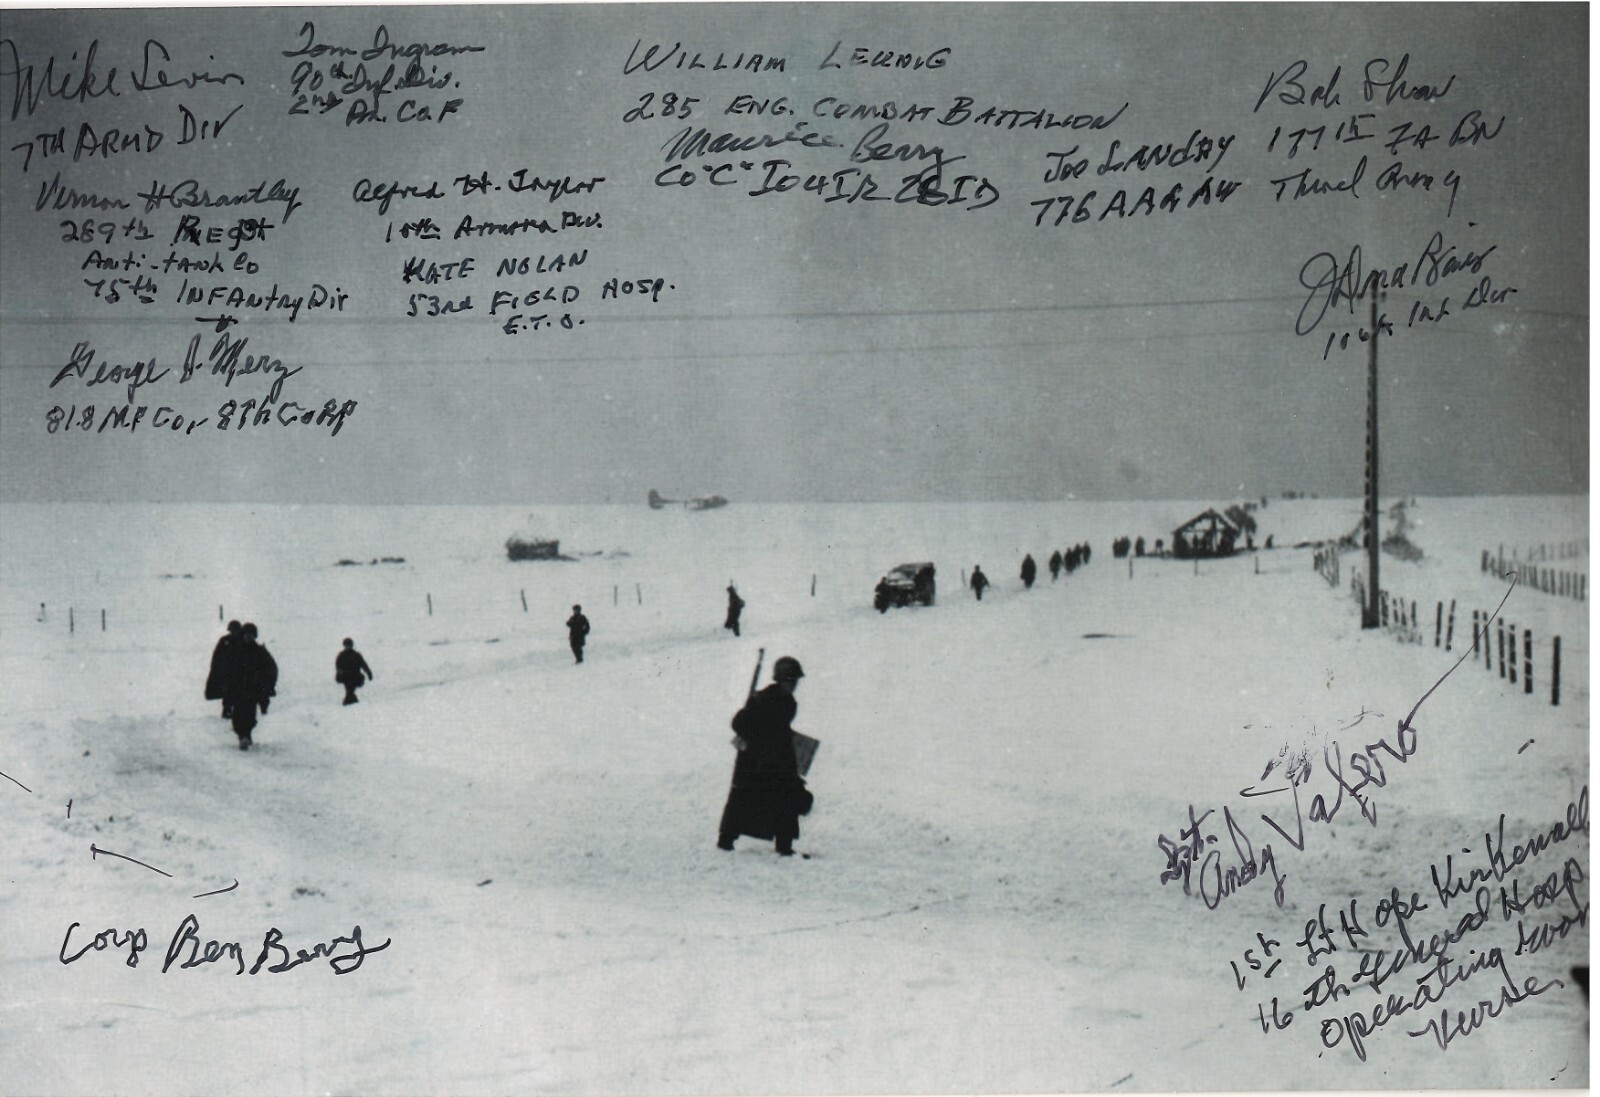 Mike Levin
7TH ARMD DIV
Tom Ingram
90th Inf. Div.
2nd Co. F
WILLIAM
285 ENG. COMBAT BATTALION
Maurice Berry
Co "C"
Joe LANDRY
776 AAA AW
Bob Shaw
177th FA BN
Third Army
Vernon H Brantley
289th REGT
Anti-tank Co
75th INFAntry Div
Alfred H.
10th Div.
KATE NOLAN
53rd FIELD HOSP.
E.T.O.
106th Inf Div
George J. Merz
818 MP Co., 8th CORP
Sgt.
Andy Valero
1st Lt Hope Kirkenall
16th General Hosp
operating room
Nurse.
Corp Ben Berry